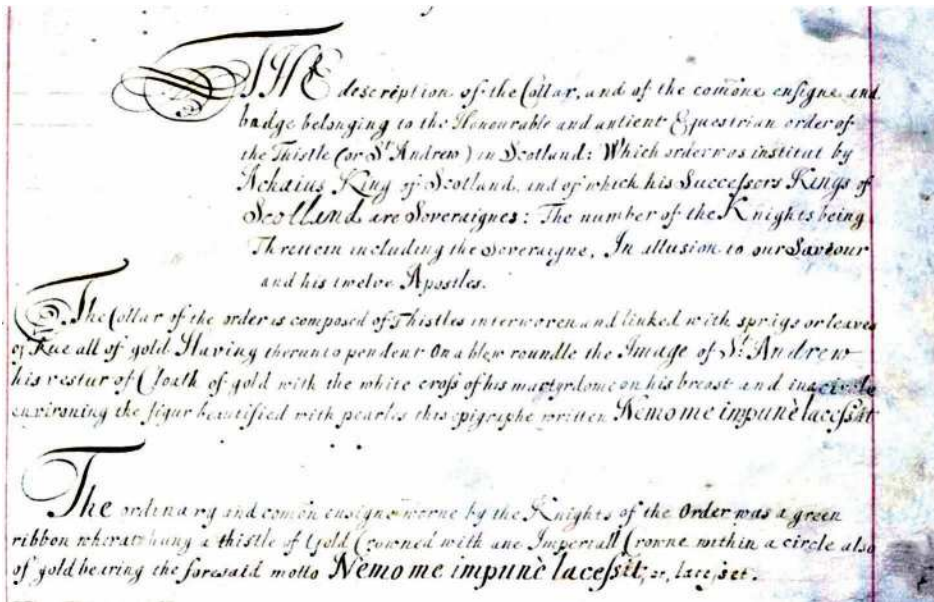 THE description of the Collar, and of the comōne ensigne and
badge belonging to the Honourable and antient Equestrian order of
the Thistle (or Sᵗ Andrew) in Scotland: Which order was institut by
Achaius King of Scotland, and of which his Successors Kings of
Scotland are Soveraignes: The number of the Knights being
Thretein including the Soveraigne, In allusion to our Saviour
and his twelve Apostles.
The Collar of the order is composed of Thistles interworen and linked with sprigs or leaves
of Rue all of gold Having therunto pendent On a blew roundle the Image of Sᵗ Andrew
his vestur of Cloath of gold with the white cross of his martyrdome on his breast and in a circle
environing the figur beautified with pearles this epigraphe written Nemo me impunè lacessit
The ordinary and comōn ensigne worne by the Knights of the Order was a green
ribbon wherat hung a thistle of Gold Crowned with ane Imperiall Crowne within a circle also
of gold bearing the foresaid motto Nemo me impunè lacessit, or, lacesset.